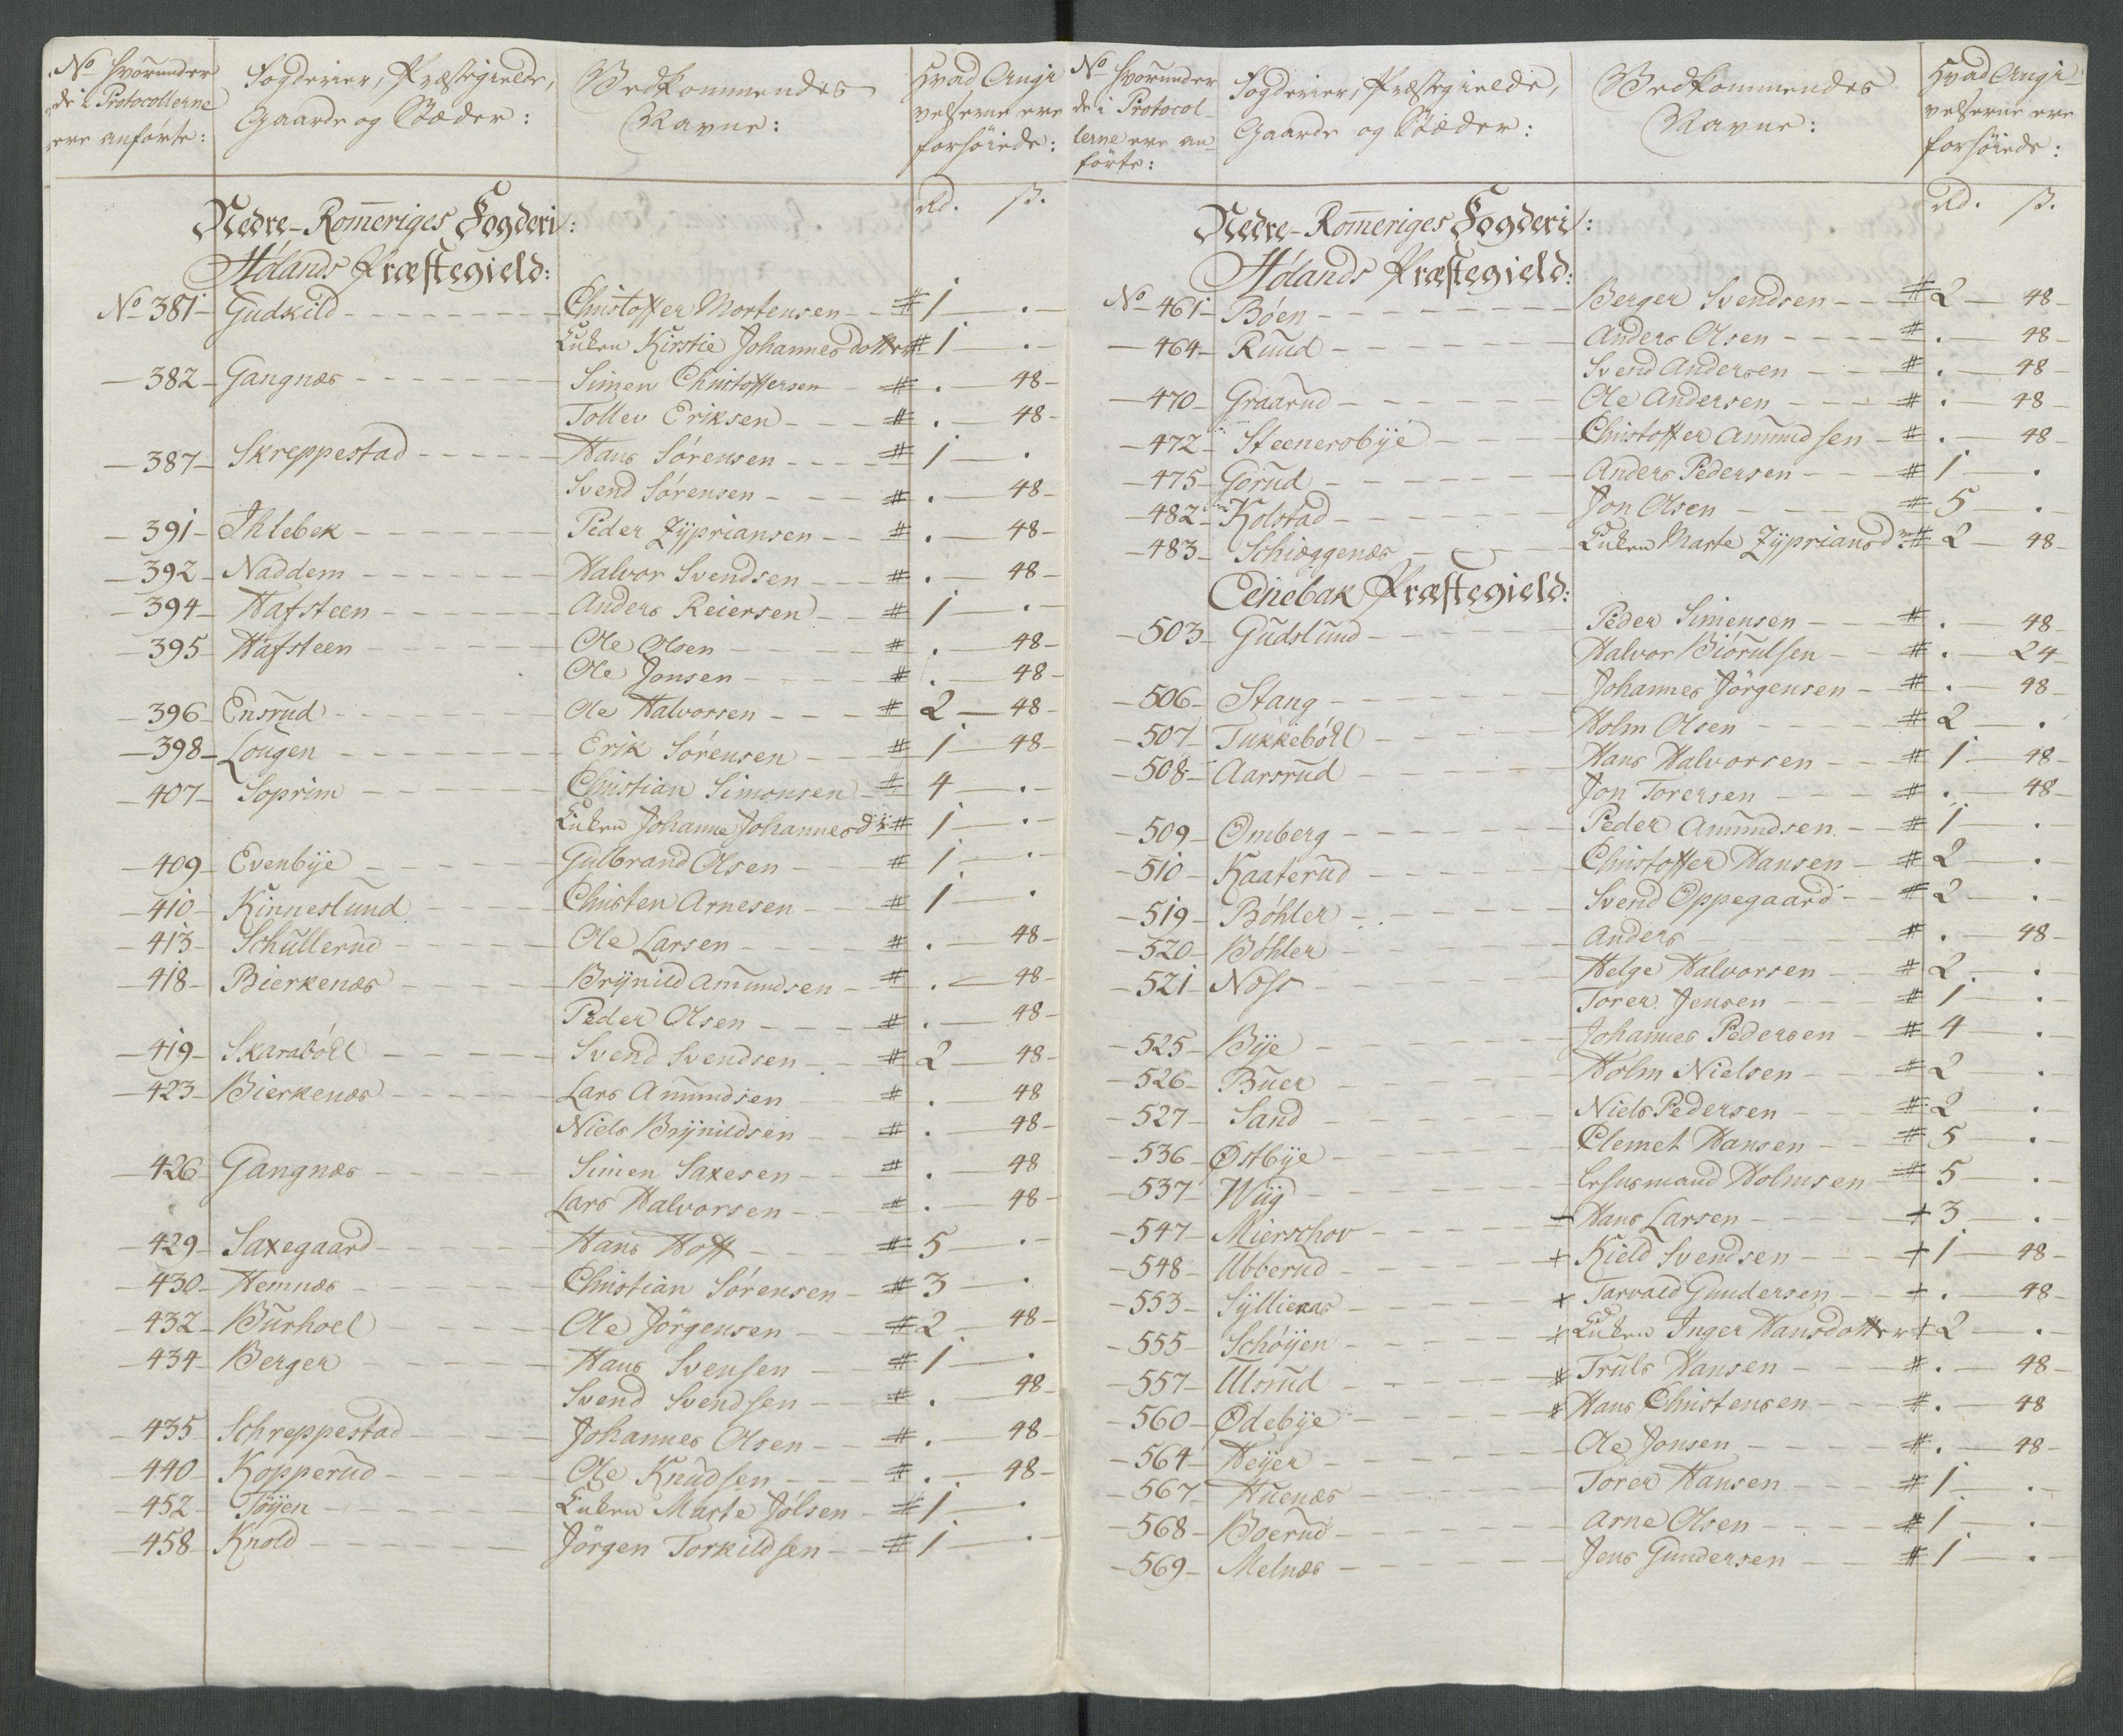 No hvorunder de i Protocollerne ere anførte: Fogderier, Præstegielde, Gaarde og Stæder: Vedkommendes Navne: Hvad Angivelserne ere forhöiede:
Rd. ß.
Nedre-Romeriges Fogderi:
Hölands Præstegield:
No 381 Gudkild Christoffer Mortensen # 1 .
Enken Kirstie Johannesdotter # 1 .
382 Gangnæs Simen Christoffersen # . 48
Tollev Eriksen # . 48
387 Skreppestad Hans Sörensen # 1 .
Svend Sörensen # . 48
391 Ihlebek Peder Zypriansen # . 48
392 Naddem Halvor Svendsen # . 48
394 Hafsteen Anders Reiersen # 1 .
395 Hafsteen Ole Olsen # . 48
Ole Jonsen # . 48
396 Ensrud Ole Halvorsen # 2 48
398 Lougen Erik Sörensen # 1 48
407 Soprim Christian Simonsen # 4 .
Enken Johanne Johannesdr # 1 .
409 Evenbye Gulbrand Olsen # 1 .
410 Kinneslund Christen Arnesen # 1 .
413 Schullerud Ole Larsen # . 48
418 Bierkenæs Brynild Amundsen # . 48
Peder Olsen # . 48
419 Skaraböhl Svend Svendsen # 2 48
423 Bierkenæs Lars Amundsen # . 48
Niels Brynildsen # . 48
426 Gangnæs Simen Saxesen # . 48
Lars Halvorsen # . 48
429 Saxegaard Hans Hoff # 5 .
430 Hemnæs Christian Sörensen # 3 .
432 Burhoel Ole Jörgensen # 2 48
434 Berger Hans Svensen # 1 .
Svend Svendsen # . 48
435 Schreppestad Johannes Olsen # . 48
440 Kopperud Ole Knudsen # . 48
452 Töyen Enken Marte Jölsen # 1 .
458 Knold Jörgen Torkildsen # 1 .
No hvorunder de i Protocollerne ere anförte: Fogderier, Præstegielde, Gaarde og Stæder: Vedkommendes Navne: Hvad Angivelserne ere forhöiede:
Rd. ß.
Nedre-Romeriges Fogderi:
Hölands Præstegield:
No 461 Böen Berger Svendsen # 2 48
464 Ruud Anders Olsen # . 48
Svend Andersen # . 48
470 Graarud Ole Andersen # . 48
472 Steenersbye Christoffer Amundsen # . 48
475 Gorud Anders Pedersen # 1 .
482 Kolstad Jon Olsen # 5 .
483 Schiæggenæs Enken Marte Zypriansdr # 2 48
Eenebak Præstegield:
503 Gudslund Peder Simensen # . 48
Halvor Biörulsen # . 24
506 Stang Johannes Jörgensen # . 48
507 Tukkeböhl Holm Olsen # 2 .
508 Aarsrud Hans Halvorsen # 1 48
Jon Torersen # . 48
509 Omberg Peder Amundsen # 1 .
510 Kaaterud Christoffer Hansen # 2 .
519 Böhler Svend Oppegaard # 2 .
520 Böhler Anders # . 48
521 Noss Helge Halvorsen # 2 .
Torer Jensen # 1 .
525 Bye Johannes Pedersen # 4 .
526 Buer Holm Nielsen # 2 .
527 Sand Niels Pedersen # 2 .
536 Østbye Clemet Hansen # 5 .
537 Wiig Holmsen # 5 .
547 Mierschov Hans Larsen + 3 .
548 Ubberud + Kield Svendsen + 1 48
553 Syllienæs + Tarvald Gundersen + . 48
555 Schöyen + Enken Inger Hansdotter + 2 .
557 Ulsrud # Truls Hansen # . 48
560 Ødebye # Hans Christensen # . 48
564 Heyer Ole Jonsen # . 48
567 Huenæs Torer Hansen # 1 .
568 Boerud Arne Olsen # 1 .
569 Melnæs Jens Gundersen # 1 .